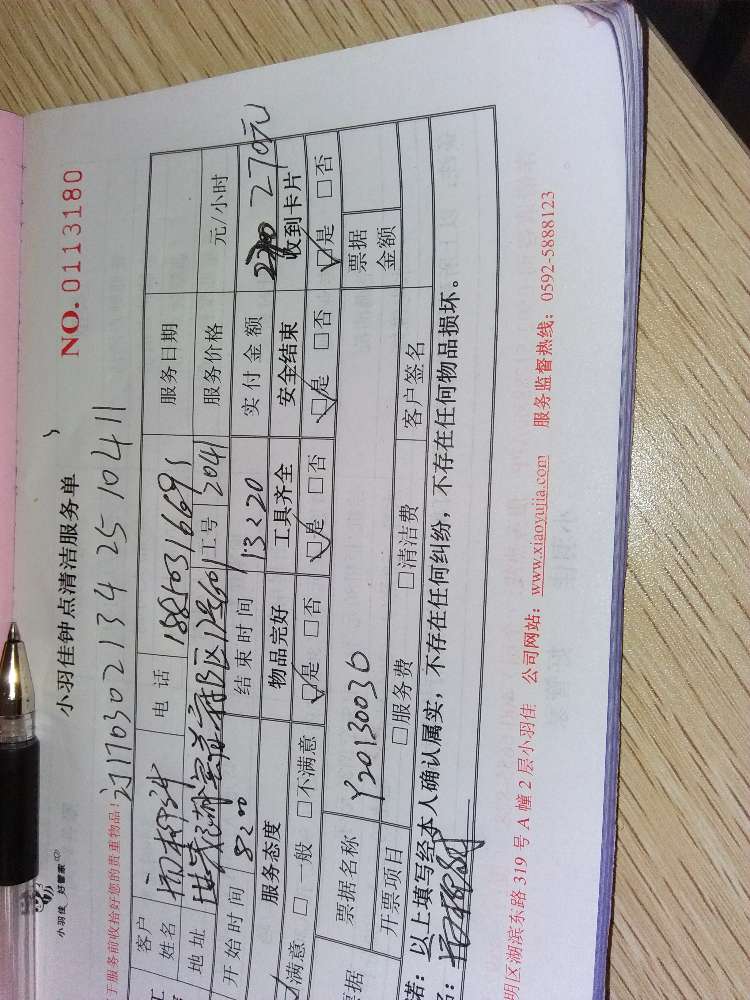 小羽佳 好管家
小羽佳钟点清洁服务单
NO.0113180
于服务前收拾好您的贵重物品！
订1703021342510411
客户姓名
电话 18850316691
服务日期
地址
工号 2041
服务价格 元/小时
开始时间 8:00
结束时间 13:20
实付金额 270元
服务态度
物品完好
工具齐全
安全结束
收到卡片
满意 □一般 □不满意
□是 □否
□是 □否
□是 □否
□是 □否
票据名称 Y20130036
票据金额
票据
开票项目 □服务费 □清洁费
客户签名
诺：以上填写经本人确认属实，不存在任何纠纷，不存在任何物品损坏。
明区湖滨东路 319 号 A 幢 2 层小羽佳 公司网站：www.xiaoyujia.com 服务监督热线：0592-5888123